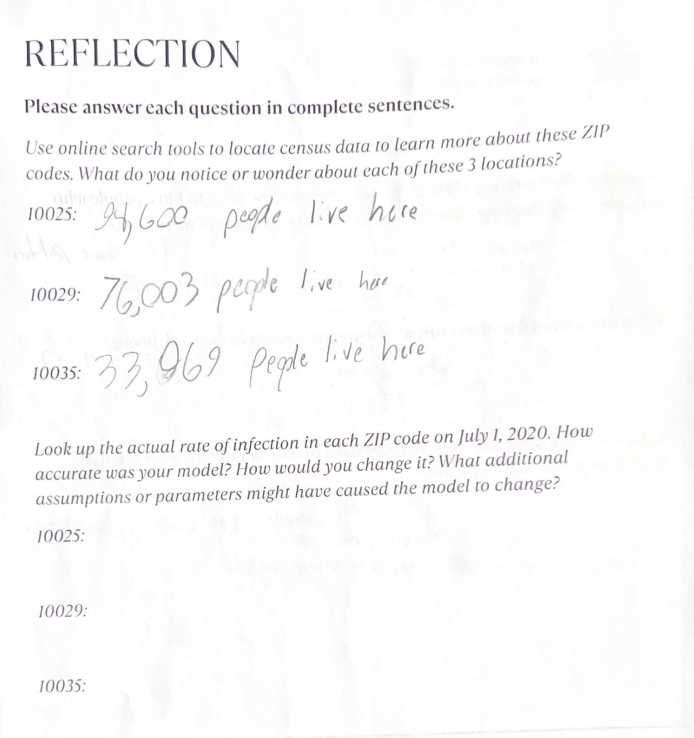 REFLECTION
Please answer each question in complete sentences.
Use online search tools to locate census data to learn more about these ZIP
codes. What do you notice or wonder about each of these 3 locations?
10025: 94,600 people live here
10029: 76,003 people live here
10035: 33,969 People live here
Look up the actual rate of infection in each ZIP code on July 1, 2020. How
accurate was your model? How would you change it? What additional
assumptions or parameters might have caused the model to change?
10025:
10029:
10035: